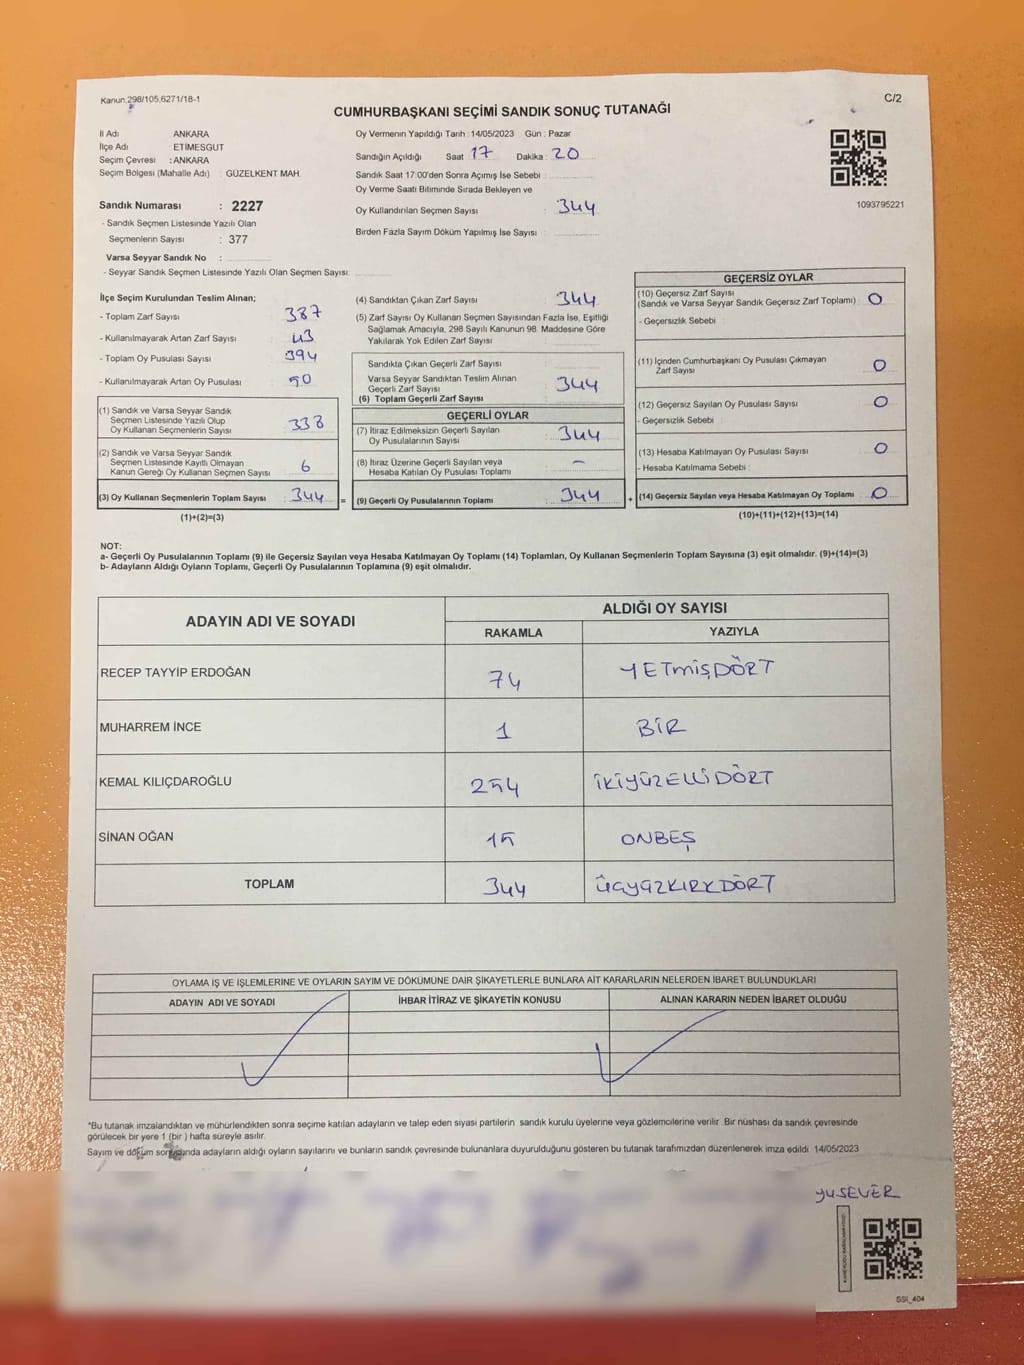 Kanun,298/105,6271/18-1
C/2
CUMHURBAŞKANI SEÇİMİ SANDIK SONUÇ TUTANAĞI
İl Adı ANKARA
İlçe Adı : ETİMESGUT
Seçim Çevresi : ANKARA
Seçim Bölgesi (Mahalle Adı) : GÜZELKENT MAH.
Sandık Numarası : 2227
- Sandık Seçmen Listesinde Yazılı Olan
Seçmenlerin Sayısı : 377
Varsa Seyyar Sandık No :
- Seyyar Sandık Seçmen Listesinde Yazılı Olan Seçmen Sayısı:
Oy Vermenin Yapıldığı Tarih : 14/05/2023 Gün : Pazar
Sandığın Açıldığı Saat 17 Dakika : 20
Sandık Saat 17:00'den Sonra Açımış İse Sebebi :
Oy Verme Saati Bitiminde Sırada Bekleyen ve
Oy Kullandırılan Seçmen Sayısı : 344
Birden Fazla Sayım Döküm Yapılmış İse Sayısı :
1093795221
İlçe Seçim Kurulundan Teslim Alınan;
- Toplam Zarf Sayısı : 387
- Kullanılmayarak Artan Zarf Sayısı : 43
- Toplam Oy Pusulası Sayısı : 394
- Kullanılmayarak Artan Oy Pusulası : 50
(1) Sandık ve Varsa Seyyar Sandık
Seçmen Listesinde Yazılı Olup
Oy Kullanan Seçmenlerin Sayısı : 338
(2) Sandık ve Varsa Seyyar Sandık
Seçmen Listesinde Kayıtlı Olmayan
Kanun Gereği Oy Kullanan Seçmen Sayısı : 6
(3) Oy Kullanan Seçmenlerin Toplam Sayısı : 344 =
(1)+(2)=(3)
(4) Sandıktan Çıkan Zarf Sayısı : 344
(5) Zarf Sayısı Oy Kullanan Seçmen Sayısından Fazla İse, Eşitliği
Sağlamak Amacıyla, 298 Sayılı Kanunun 98. Maddesine Göre
Yakılarak Yok Edilen Zarf Sayısı :
Sandıkta Çıkan Geçerli Zarf Sayısı :
Varsa Seyyar Sandıktan Teslim Alınan
Geçerli Zarf Sayısı : 344
(6) Toplam Geçerli Zarf Sayısı
GEÇERLİ OYLAR
(7) İtiraz Edilmeksizin Geçerli Sayılan
Oy Pusulalarının Sayısı : 344
(8) İtiraz Üzerine Geçerli Sayılan veya
Hesaba Katılan Oy Pusulası Toplamı : -
(9) Geçerli Oy Pusulalarının Toplamı : 344 +
GEÇERSİZ OYLAR
(10) Geçersiz Zarf Sayısı
(Sandık ve Varsa Seyyar Sandık Geçersiz Zarf Toplamı) : 0
- Geçersizlik Sebebi :
(11) İçinden Cumhurbaşkanı Oy Pusulası Çıkmayan
Zarf Sayısı : 0
(12) Geçersiz Sayılan Oy Pusulası Sayısı : 0
- Geçersizlik Sebebi :
(13) Hesaba Katılmayan Oy Pusulası Sayısı : 0
- Hesaba Katılmama Sebebi :
(14) Geçersiz Sayılan veya Hesaba Katılmayan Oy Toplamı : 0
(10)+(11)+(12)+(13)=(14)
NOT:
a- Geçerli Oy Pusulalarının Toplamı (9) ile Geçersiz Sayılan veya Hesaba Katılmayan Oy Toplamı (14) Toplamları, Oy Kullanan Seçmenlerin Toplam Sayısına (3) eşit olmalıdır. (9)+(14)=(3)
b- Adayların Aldığı Oyların Toplamı, Geçerli Oy Pusulalarının Toplamına (9) eşit olmalıdır.
ADAYIN ADI VE SOYADI
ALDIĞI OY SAYISI
RAKAMLA YAZIYLA
RECEP TAYYİP ERDOĞAN 74 YETMİŞDÖRT
MUHARREM İNCE 1 BİR
KEMAL KILIÇDAROĞLU 254 İKİYÜZELLİDÖRT
SİNAN OĞAN 15 ONBEŞ
TOPLAM 344 ÜÇYÜZKIRKDÖRT
OYLAMA İŞ VE İŞLEMLERİNE VE OYLARIN SAYIM VE DÖKÜMÜNE DAİR ŞİKAYETLERLE BUNLARA AİT KARARLARIN NELERDEN İBARET BULUNDUKLARI
ADAYIN ADI VE SOYADI İHBAR İTİRAZ VE ŞİKAYETİN KONUSU ALINAN KARARIN NEDEN İBARET OLDUĞU
*Bu tutanak imzalandıktan ve mühürlendikten sonra seçime katılan adayların ve talep eden siyasi partilerin sandık kurulu üyelerine veya gözlemcilerine verilir. Bir nüshası da sandık çevresinde
görülecek bir yere 1 (bir ) hafta süreyle asılır.
Sayım ve döküm sonucunda adayların aldığı oyların sayılarını ve bunların sandık çevresinde bulunanlara duyurulduğunu gösteren bu tutanak tarafımızdan düzenlenerek imza edildi 14/05/2023
YUSEVER
SSI_404